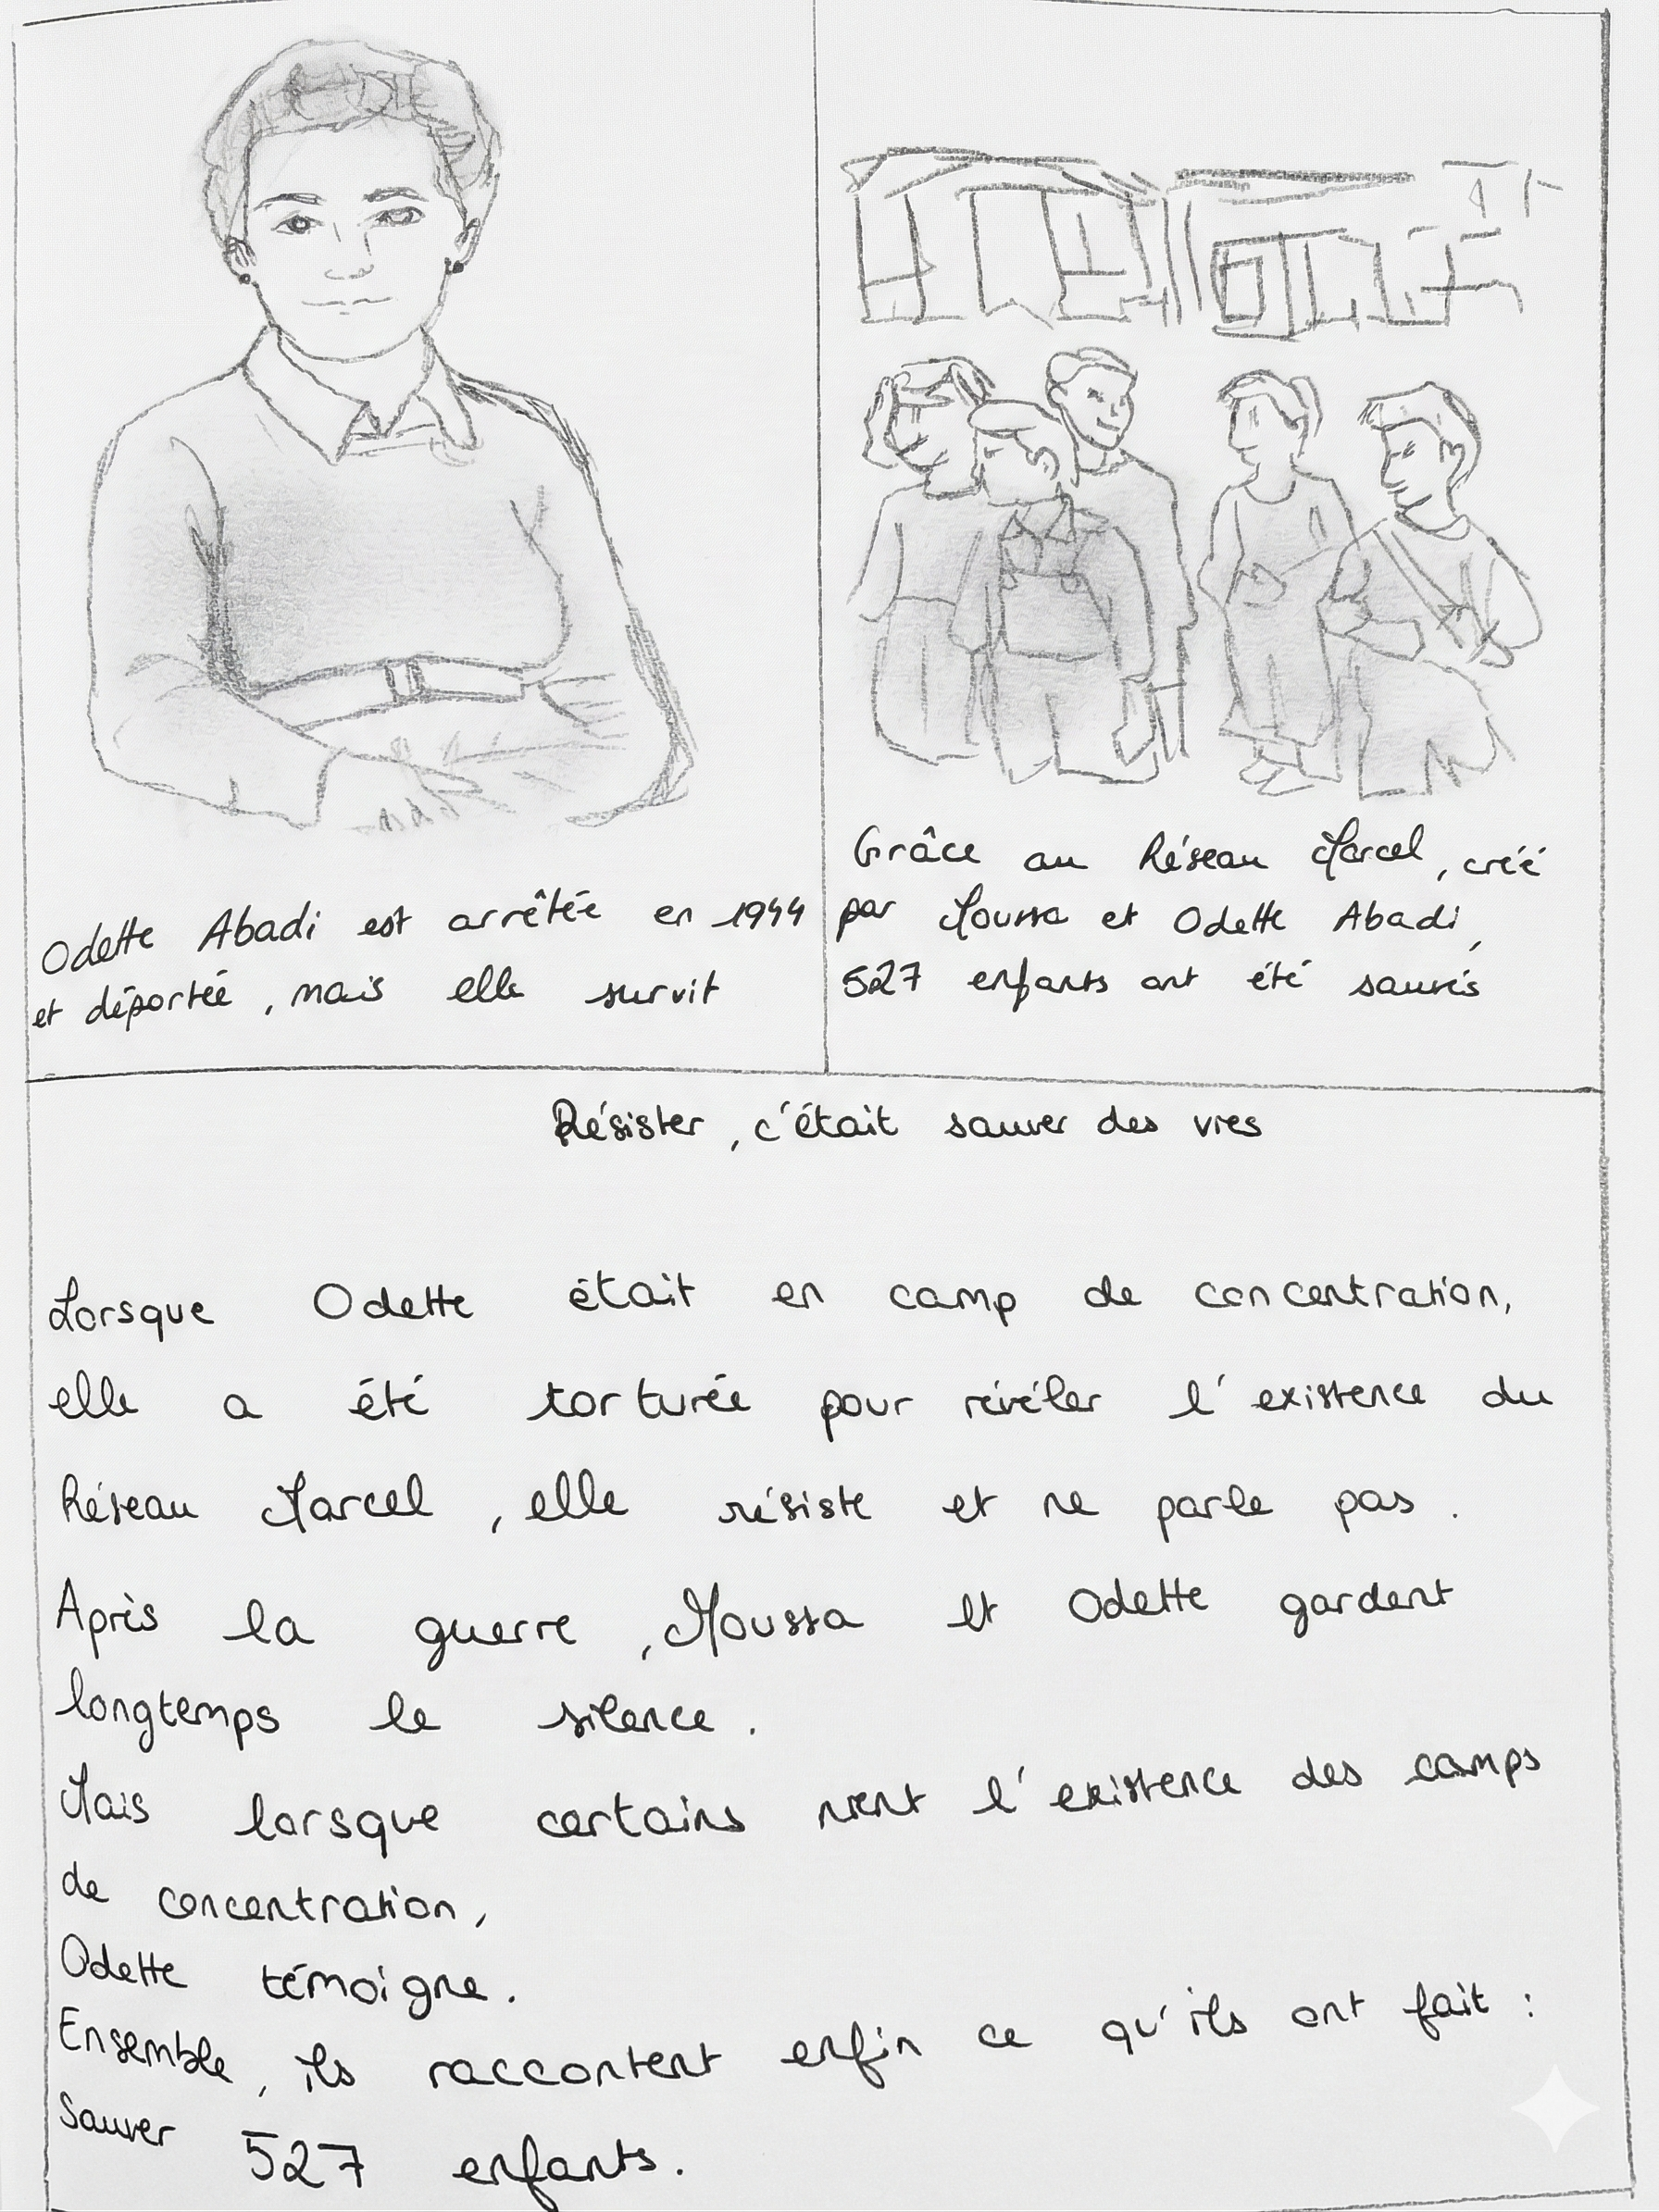 Odette Abadi est arrêtée en 1944
et déportée, mais elle survit
Grâce au Réseau Marcel, créé
par Moussa et Odette Abadi,
527 enfants ont été sauvés
Résister, c'était sauver des vies
Lorsque Odette était en camp de concentration,
elle a été torturée pour révéler l'existence du
Réseau Marcel, elle résiste et ne parle pas.
Après la guerre, Moussa et Odette gardent
longtemps le silence.
Mais lorsque certains nient l'existence des camps
de concentration,
Odette témoigne.
Ensemble, ils raccontent enfin ce qu'ils ont fait :
Sauver 527 enfants.